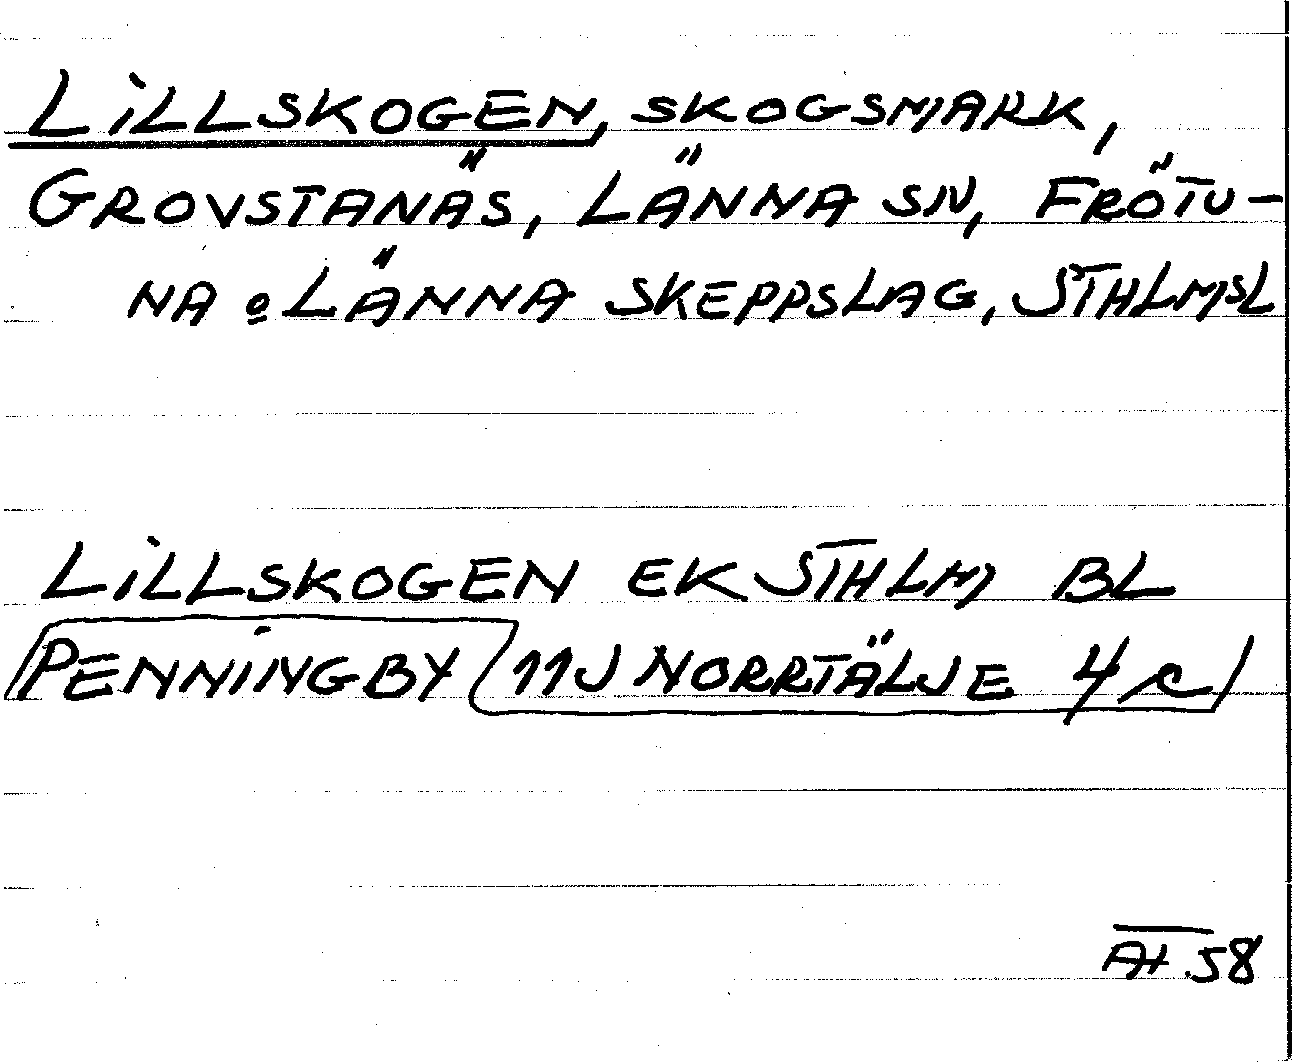 LILLSKOGEN, SKOGSMARK,
GROVSTANÄS, LÄNNA SN, FRÖTU-
NA o LÄNNA SKEPPSLAG, STHLMSL
LILLSKOGEN EK STHLM BL
PENNINGBY 11J NORRTÄLJE 4 c
At 58